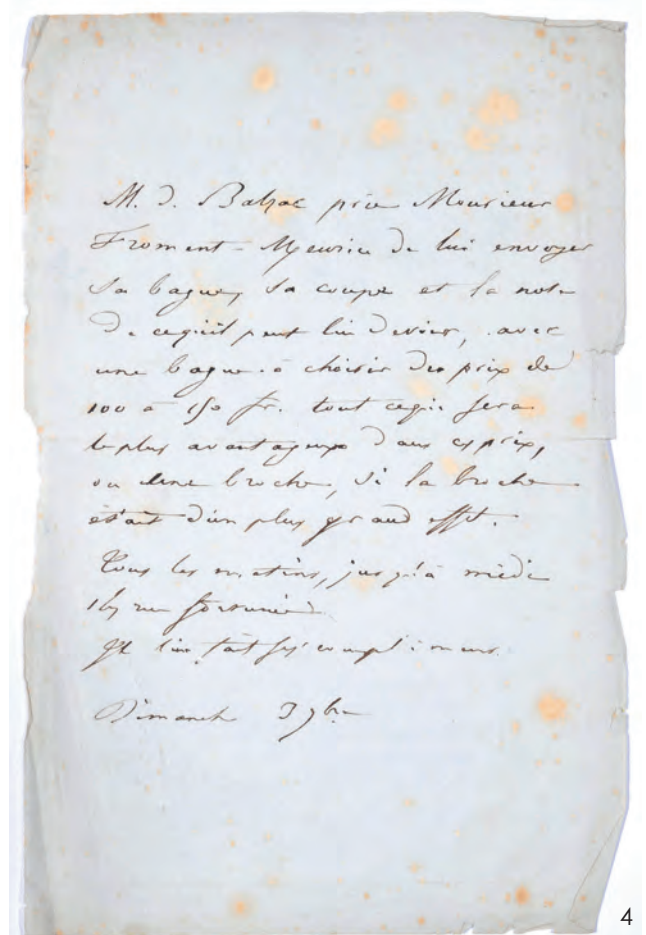 M. d. Balzac prie Monsieur
Froment-Meurice de lui envoyer
sa bague, sa coupe et la note
de ce qu'il peut lui devoir, avec
une bague à choisir des prix de
100 à 150 fr. tout ce qui sera
le plus avantageux dans ces prix,
ou une broche, si la broche
était d'un plus grand effet.
Tous les matins, jusqu'à midi
rue fortunée
Il lui fait ses compliments.
Dimanche 9bre
4